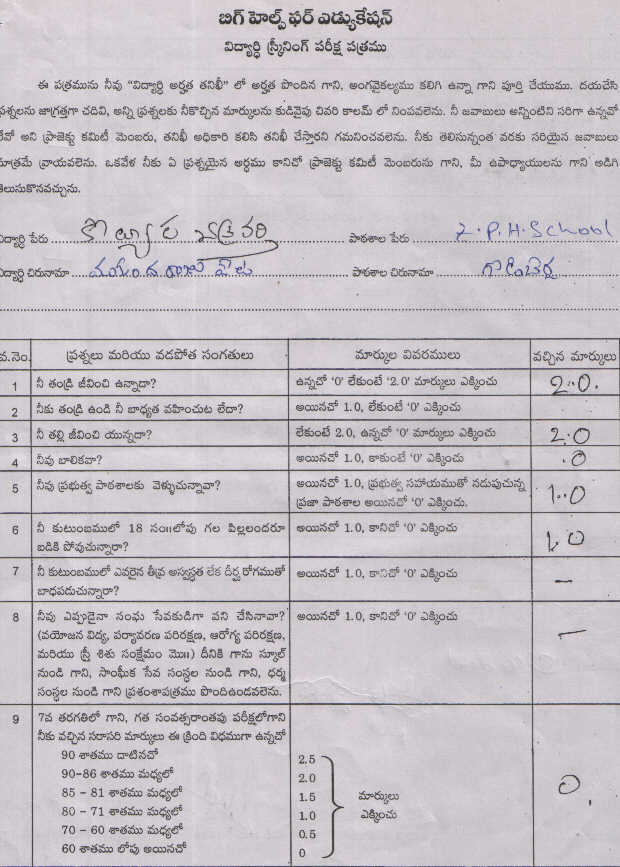 బిగ్ హెల్ప్ ఫర్ ఎడ్యుకేషన్
విద్యార్ధి స్క్రీనింగ్ పరీక్ష పత్రము
ఈ పత్రమును నీవు "విద్యార్ధి అర్హత తనిఖీ" లో అర్హత పొందిన గాని, అంగవైకల్యము కలిగి ఉన్నా గాని పూర్తి చేయుము. దయచేసి
ప్రశ్నలను జాగ్రత్తగా చదివి, అన్ని ప్రశ్నలకు నీకొచ్చిన మార్కులను కుడివైపు చివరి కాలమ్ లో నింపవలెను. నీ జవాబులు అన్నింటిని సరిగా ఉన్నవో
లేవో అని ప్రాజెక్టు కమిటీ మెంబరు, తనిఖీ అధికారి కలిసి తనిఖీ చేస్తారని గమనించవలెను. నీకు తెలిసున్నంత వరకు సరియైన జవాబులు
మాత్రమే వ్రాయవలెను. ఒకవేళ నీకు ఏ ప్రశ్నయైన అర్ధము కానిచో ప్రాజెక్టు కమిటీ మెంబరును గాని, మీ ఉపాధ్యాయులను గాని అడిగి
తెలుసుకొనవచ్చును.
విద్యార్ధి పేరు పాఠశాల పేరు Z.P.H.School
విద్యార్ధి చిరునామా పాఠశాల చిరునామా
వ.నెం. ప్రశ్నలు మరియు వడపోత సంగతులు మార్కుల వివరములు వచ్చిన మార్కులు
1 నీ తండ్రి జీవించి ఉన్నాడా? ఉన్నచో '0' లేకుంటే '2.0' మార్కులు ఎక్కించు 2.0.
2 నీకు తండ్రి ఉండి నీ బాధ్యత వహించుట లేదా? అయినచో 1.0, లేకుంటే '0' ఎక్కించు
3 నీ తల్లి జీవించి యున్నదా? లేకుంటే 2.0, ఉన్నచో '0' మార్కులు ఎక్కించు 2.0
4 నీవు బాలికవా? అయినచో 1.0, కాకుంటే '0' ఎక్కించు .0
5 నీవు ప్రభుత్వ పాఠశాలకు వెళ్ళుచున్నావా? అయినచో 1.0, ప్రభుత్వ సహాయముతో నడుపుచున్న
ప్రజా పాఠశాల అయినచో '0' ఎక్కించు. 1.0
6 నీ కుటుంబములో 18 సం॥లోపు గల పిల్లలందరూ అయినచో 1.0, కానిచో '0' ఎక్కించు 1.0
బడికి పోవుచున్నారా?
7 నీ కుటుంబములో ఎవరైన తీవ్ర అస్వస్థత లేక దీర్ఘ రోగముతో అయినచో 1.0, కానిచో '0' ఎక్కించు –
బాధపడుచున్నారా?
8 నీవు ఎప్పుడైనా సంఘ సేవకుడిగా పని చేసినావా? అయినచో 1.0, కానిచో '0' ఎక్కించు –
(వయోజన విద్య, పర్యావరణ పరిరక్షణ, ఆరోగ్య పరిరక్షణ,
మరియు స్త్రీ శిశు సంక్షేమం మొ॥) దీనికి గాను స్కూల్
నుండి గాని, సాంఘీక సేవ సంస్థల నుండి గాని, ధర్మ
సంస్థల నుండి గాని ప్రశంశాపత్రము పొందిఉండవలెను.
9 7వ తరగతిలో గాని, గత సంవత్సరాంతపు పరీక్షలోగాని
నీకు వచ్చిన సరాసరి మార్కులు ఈ క్రింది విధముగా ఉన్నచో
90 శాతము దాటినచో 2.5
90-86 శాతము మధ్యలో 2.0
85 - 81 శాతము మధ్యలో 1.5 మార్కులు 0.
80 - 71 శాతము మధ్యలో 1.0 ఎక్కించు
70 - 60 శాతము మధ్యలో 0.5
60 శాతము లోపు అయినచో 0